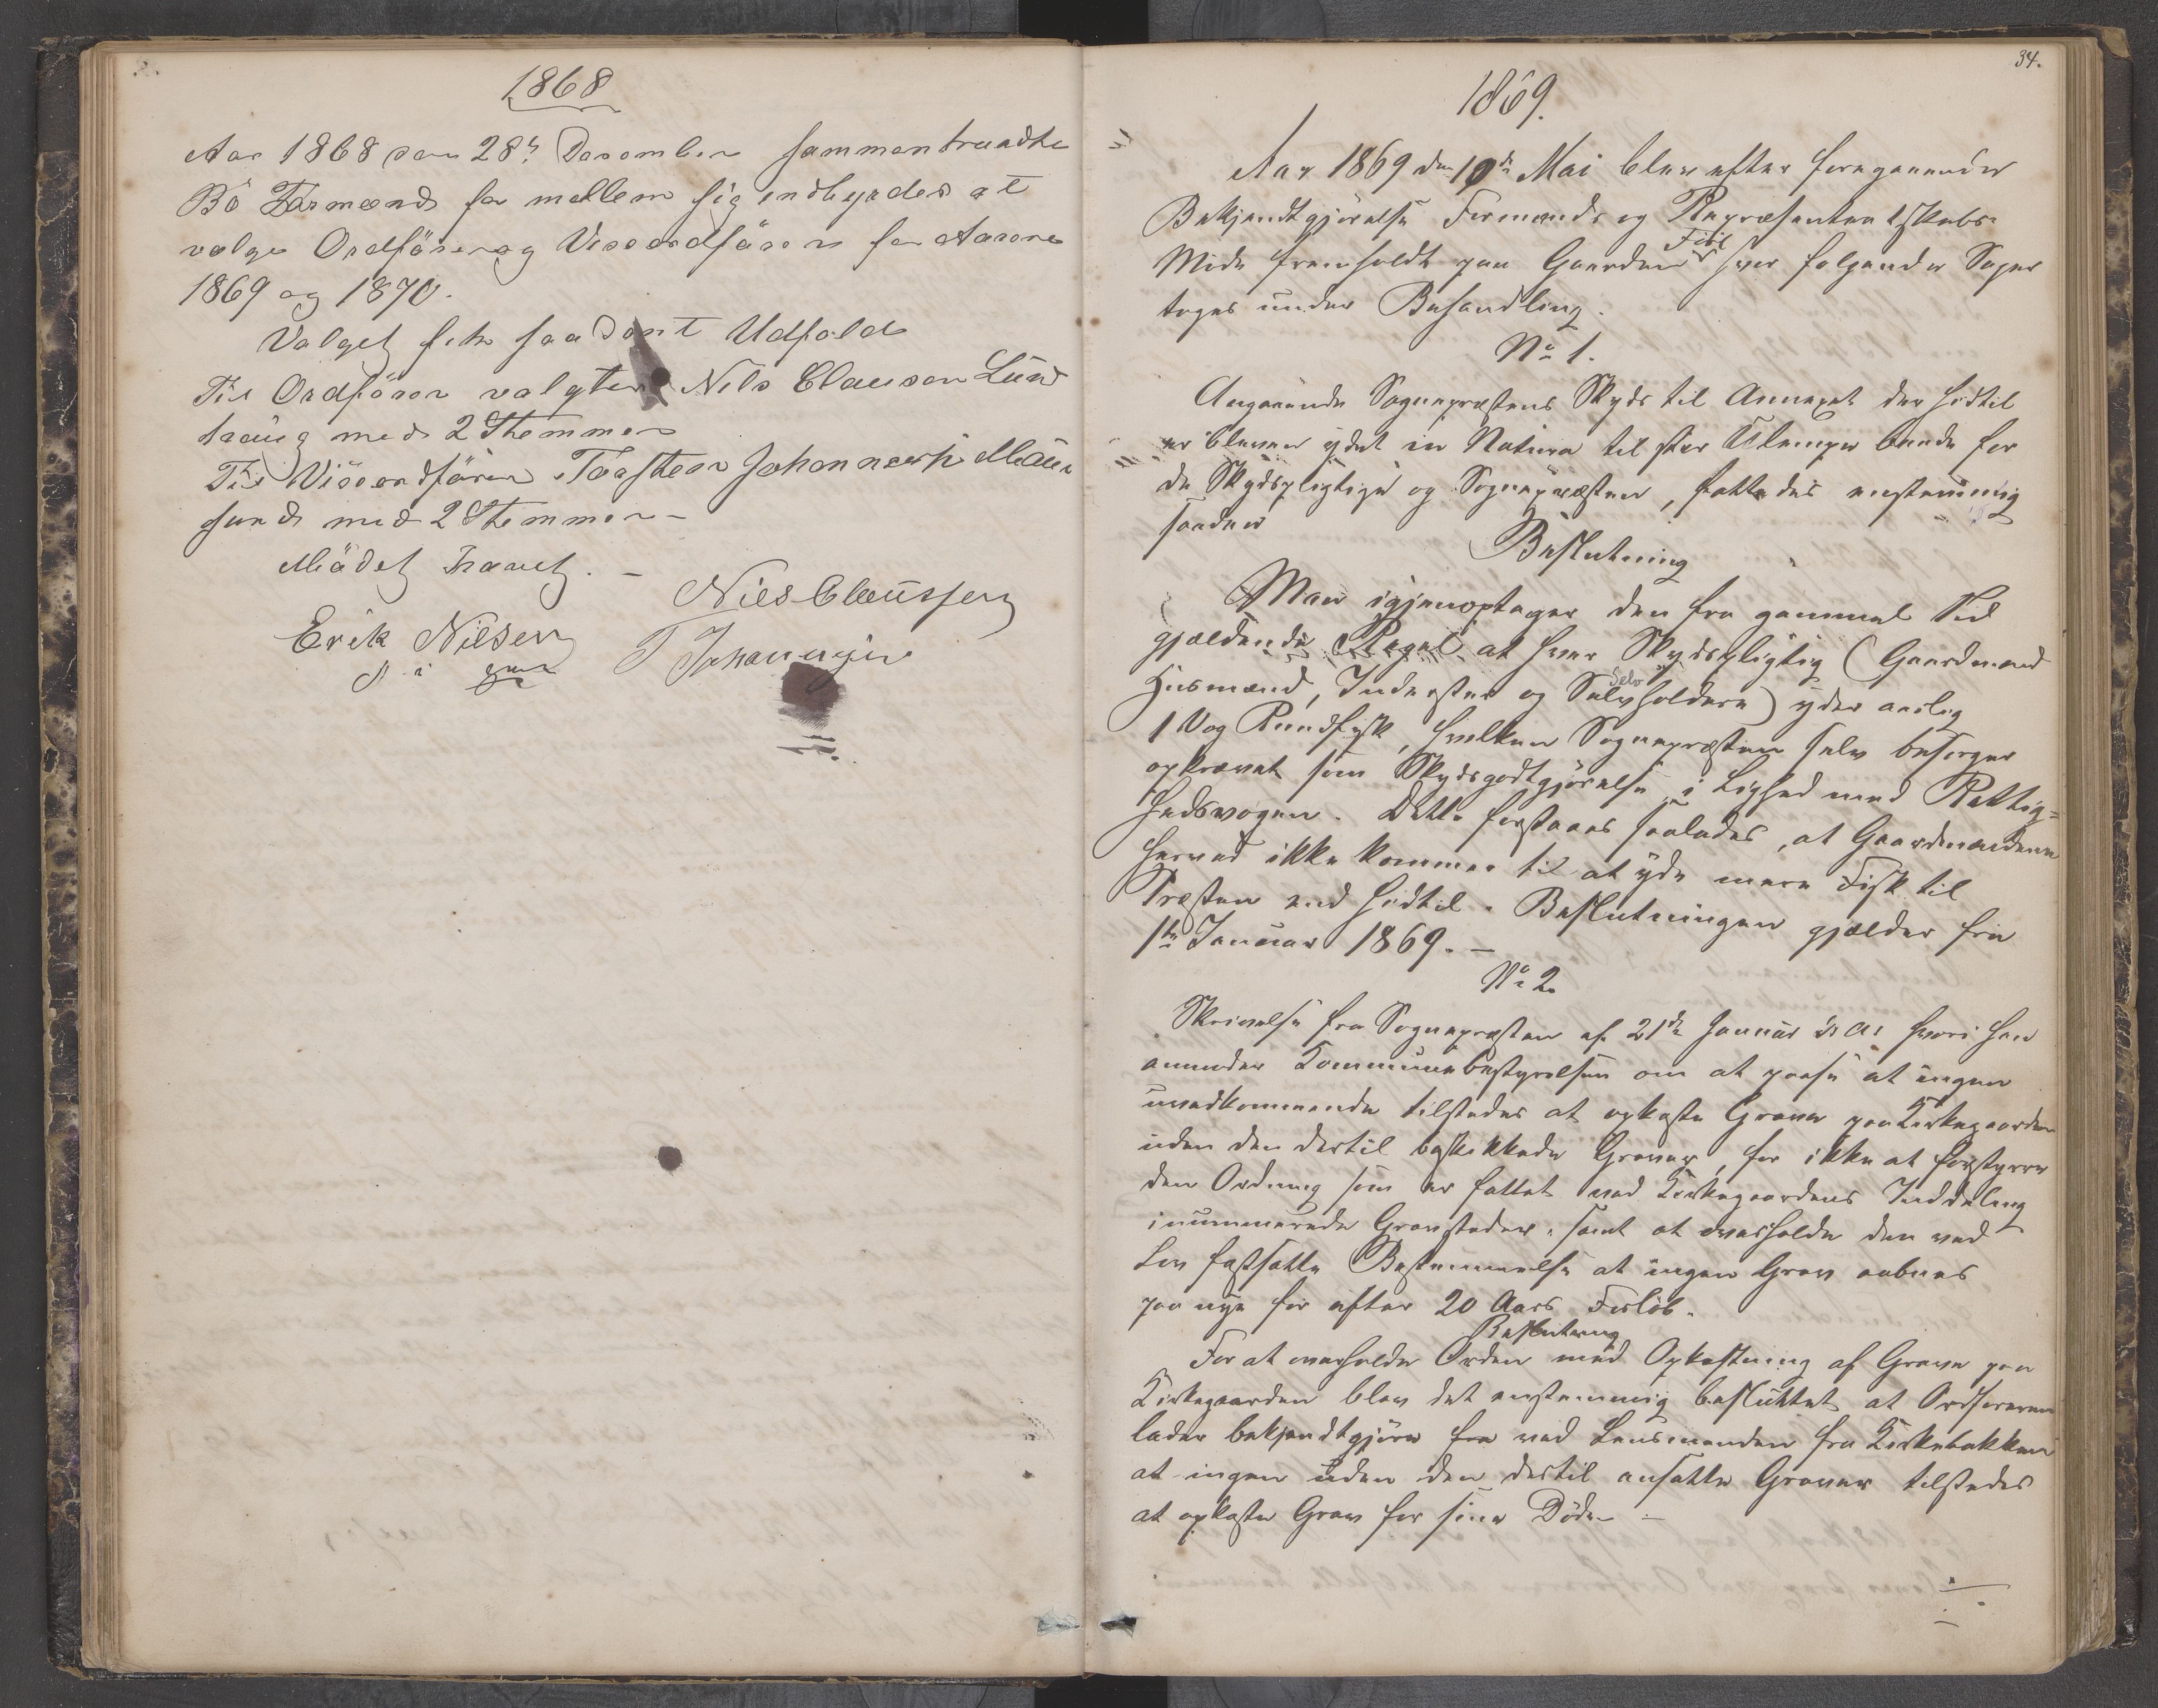 1868
Aar 1868 den 28de Desember sammentraadte
Bö Formænd for mellem sig indbyrdes at
vælge Ordförer og Viseordförer for Aarene
1869 og 1870.
Valget fik saadant Udfald
Til Ordförer valgtes Nils Clausen Lund
traug med 2 Stemmer
Til Viseordförer Torsten Johannesen
sund med 2 Stemmer –
Mödet hævet. –
Nils Claussen
Erik Nilsen
T Johannesen
34.
1869.
Aar 1869 den 10de Mai blev efter foregaaende
Bekjendtgjörelse Formands og Repræsentantskabs-
Möde fremholdt paa Gaarden Fiil hvor følgende Sager
toges under Behandling.
No 1.
Angaaende Sognepræstens Skyds til Annexet der hidtil
er bleven ydet in Natura til stor Ulempe baade for
de Skydspligtige og Sognepræsten, fattedes enstemmig
saaden
Beslutning
Man igjenoptager den fra gammel Tid
gjældende Regel at hver Skydspligtig (Gaardmænd
Husmænd, Inderster og Selvholdere) yder aarlig
Selv
1 Vog Rundfisk, hvilken Sognepræsten selv besørger
opkrævet som Skydsgodtgjörelse i Lighed med Rettig=
hedsvogen. Dette forstaaes saaledes, at Gaardmændene
herved ikke kommer til at yde mere Fisk til
Præsten end hidtil. Beslutningen gjælder fra
1te Januar 1869. –
No 2.
Skrivelse fra Sognepræsten af 21de Januar d. A. hvori han
anmoder Kommunebestyrelsen om at paase at ingen
uvedkommende tilstedes at opkaste Grave paa Kirkegaarden
uden den dertil beskikkede Graver, for ikke at forstyrre
den Ordning som er fattet med Kirkegaardens Inddeling
i nummerede Gravsteder, samt at overholde den ved
Lov fastsatte Bestemmelse at ingen Grav aabnes
paa nye før efter 20 Aars Forløb.
Beslutning
For at overholde Orden med Opkastning af Grave paa
Kirkegaarden blev det enstemmig besluttet at Ordføreren
lader bekjendtgjöre fra ved Lensmanden fra Kirkebakken
at ingen uden den dertil ansatte Graver tilstedes
at opkaste Grav for sine Döde –